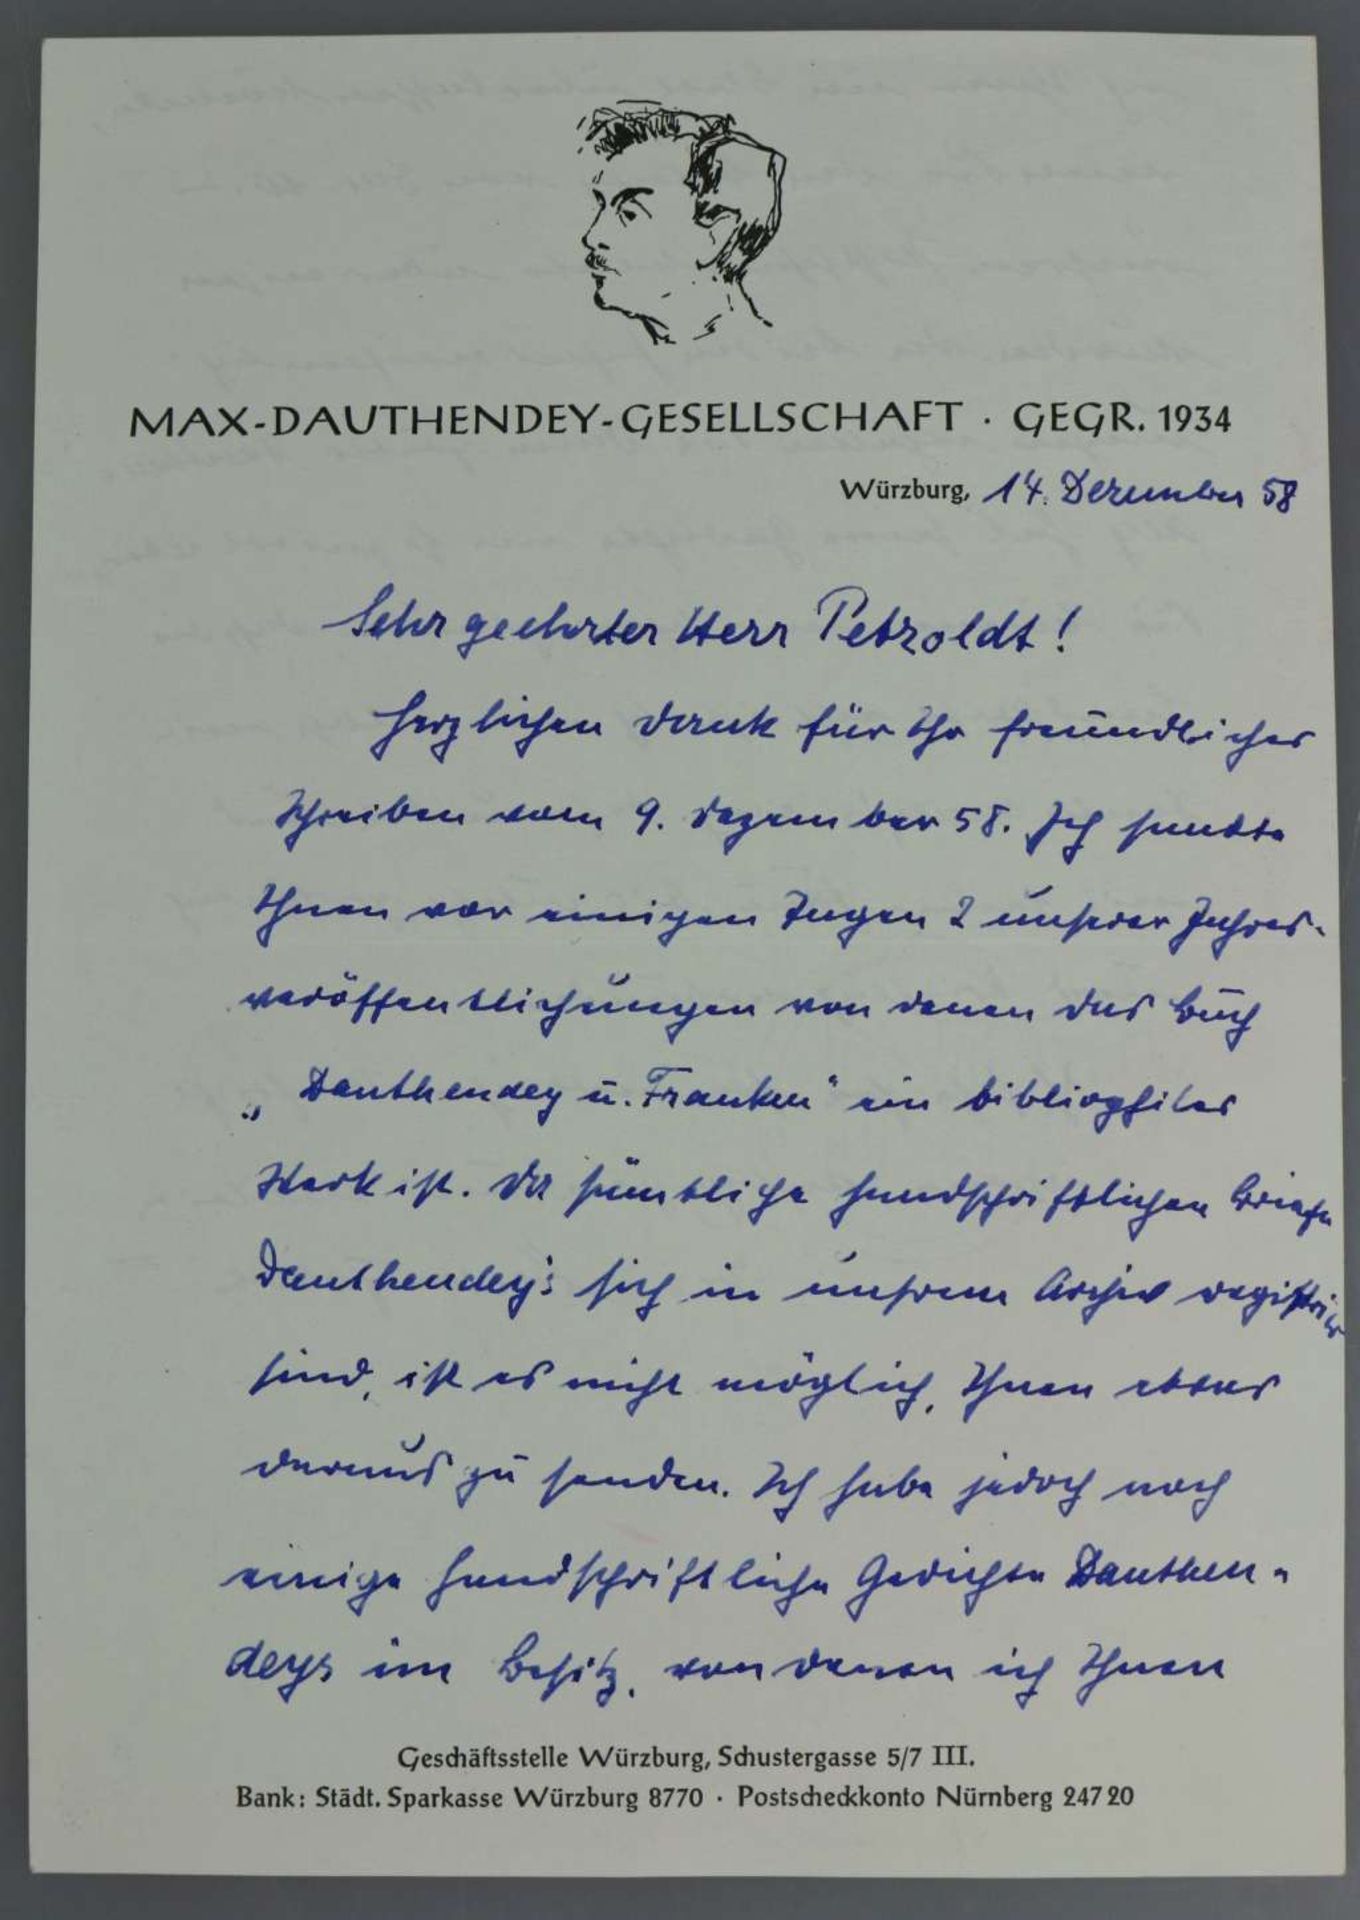 MAX-DAUTHENDEY-GESELLSCHAFT · GEGR. 1934
Würzburg, 14. Dezember 58
Sehr geehrter Herr Petzoldt!
Herzlichen Dank für Ihr freundliches
Schreiben vom 9. Dezember 58. Ich sandte
Ihnen vor einigen Tagen 2 unserer Jahres-
veröffentlichungen von denen das Buch
„Dauthendey u. Franken" ein bibliophiles
Werk ist. Da sämtliche handschriftlichen Briefe
Dauthendey's sich in unsrem Archiv registriert
sind, ist es nicht möglich, Ihnen etwas
daraus zu senden. Ich habe jedoch noch
einige handschriftliche Gedichte Dauthen-
deys im Besitz, von denen ich Ihnen
Geschäftsstelle Würzburg, Schustergasse 5/7 III.
Bank: Städt. Sparkasse Würzburg 8770 · Postscheckkonto Nürnberg 247 20